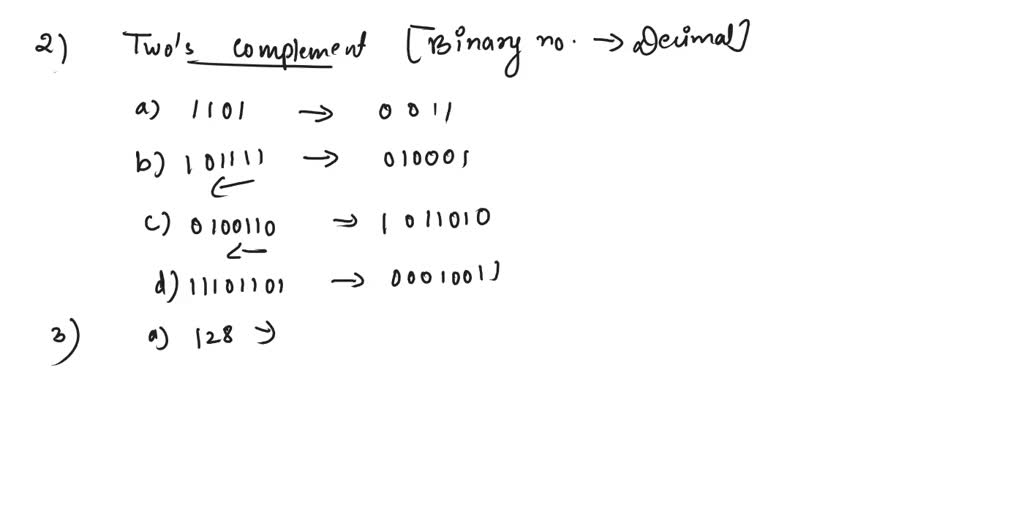 2) Two's complement [Binary no. → Decimal]
a) 1101 → 0011
b) 101111 → 010001
←
c) 0100110 → 1011010
←
d) 11101101 → 00010011
3) a) 128 →